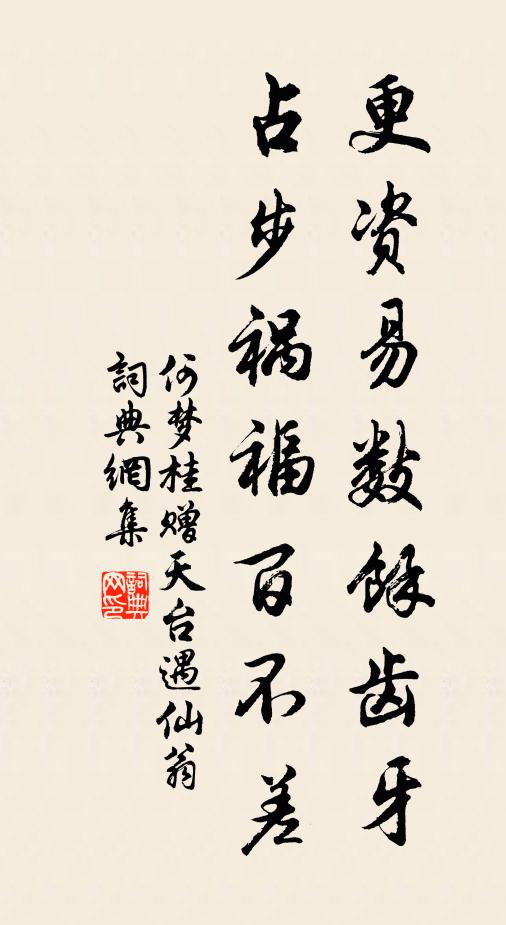 更资易数馀齿牙
占步祸福百不差
何梦桂赠天台遇仙翁
詞典網集
詞典网印